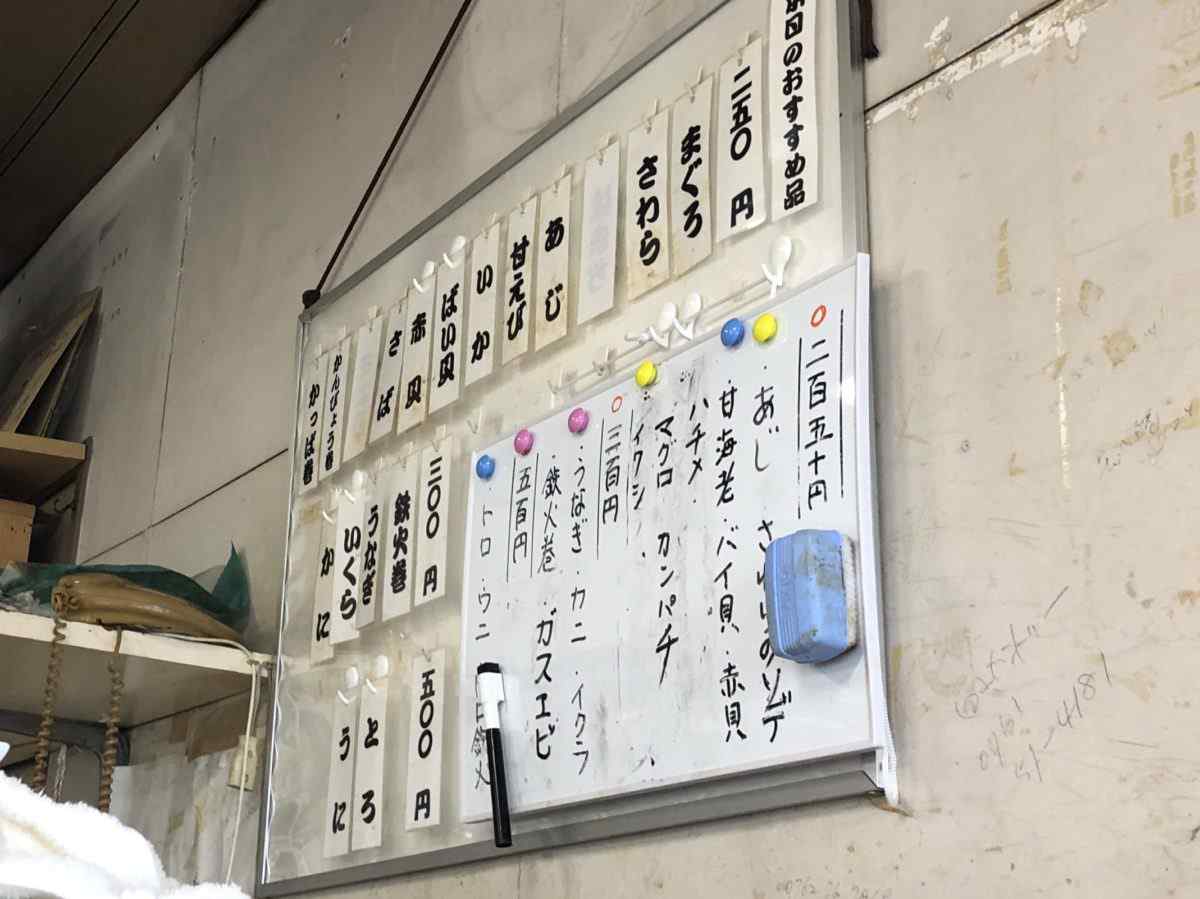 本日のおすすめ品
二五〇円
まぐろ
さわら
あじ
甘えび
いか
ばい貝
赤貝
さば
かんぴょう巻
かっぱ巻
三〇〇円
鉄火巻
うなぎ
いくら
かに
五〇〇円
とろ
うに
○二百五十円
・あじ
・甘海老・バイ貝・赤貝
ハチメ
マグロ カンパチ
・イワシ
○三百円
・うなぎ・カニ・イクラ
・鉄火巻・ガスエビ
五百円
・トロ・ウニ